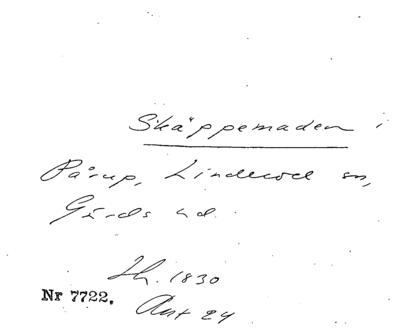 Skäppemaden i
Pårup, Linderöd sn,
Gärds hd.
Sk. 1830
Nr 7722.
Akt 24